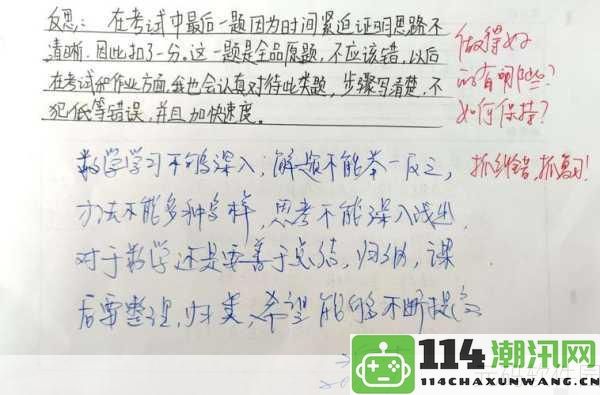 反思：在考试中最后一题因为时间紧迫证明思路不
清晰.因此扣了一分。这一题是全品原题，不应该错，以后
在考试和作业方面，我也会认真对待此类题，步骤写清楚，不
犯低等错误，并且加快速度。
做得好
的有哪些？
如何保持？
抓纠错，抓复习！
数学学习不够深入；解题不能举一反三，
方法不能多种多样，思考不能深入浅出，
对于数学还是要善于总结，归纳，课
后要整理，归类，希望能够不断提高
114潮汛网
114CHAXUNWANG.CN